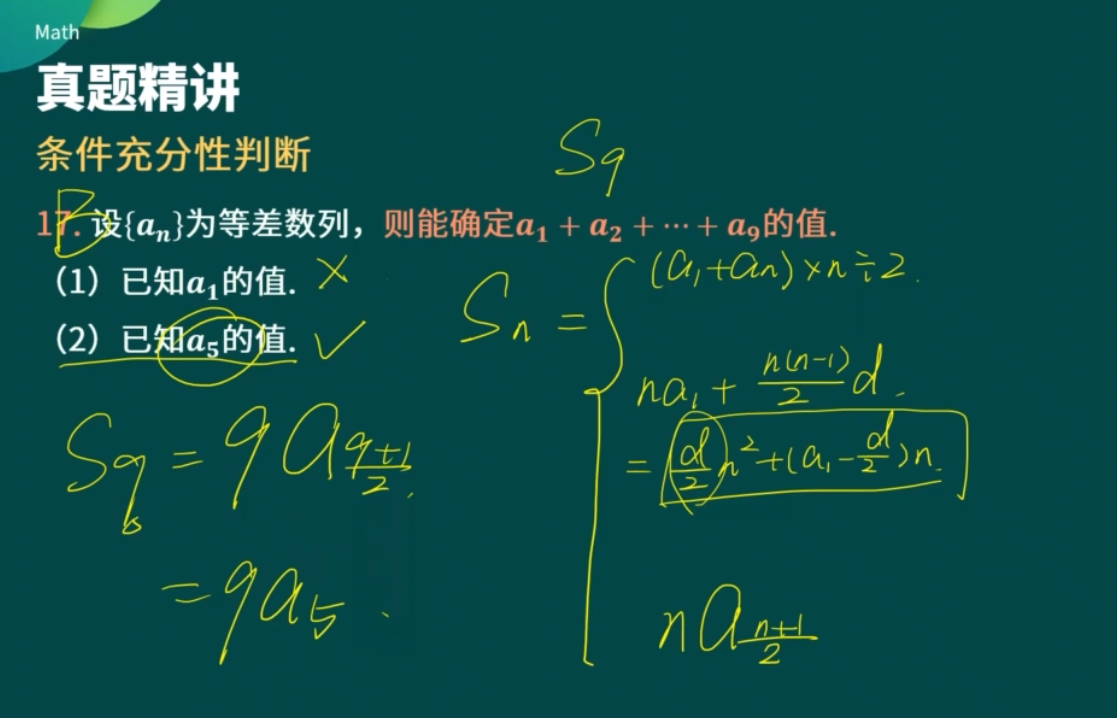 Math
真题精讲
条件充分性判断
S₉
B
17. 设{aₙ}为等差数列，则能确定a₁ + a₂ + ⋯ + a₉的值.
（1）已知a₁的值. ×
（2）已知a₅的值. ✓
Sₙ =
(a₁+aₙ)×n÷2.
na₁ + n(n-1)/2 d.
= d/2 n² + (a₁ - d/2)n.
n a_(n+1)/2
S₉ = 9 a_(9+1)/2.
= 9a₅.